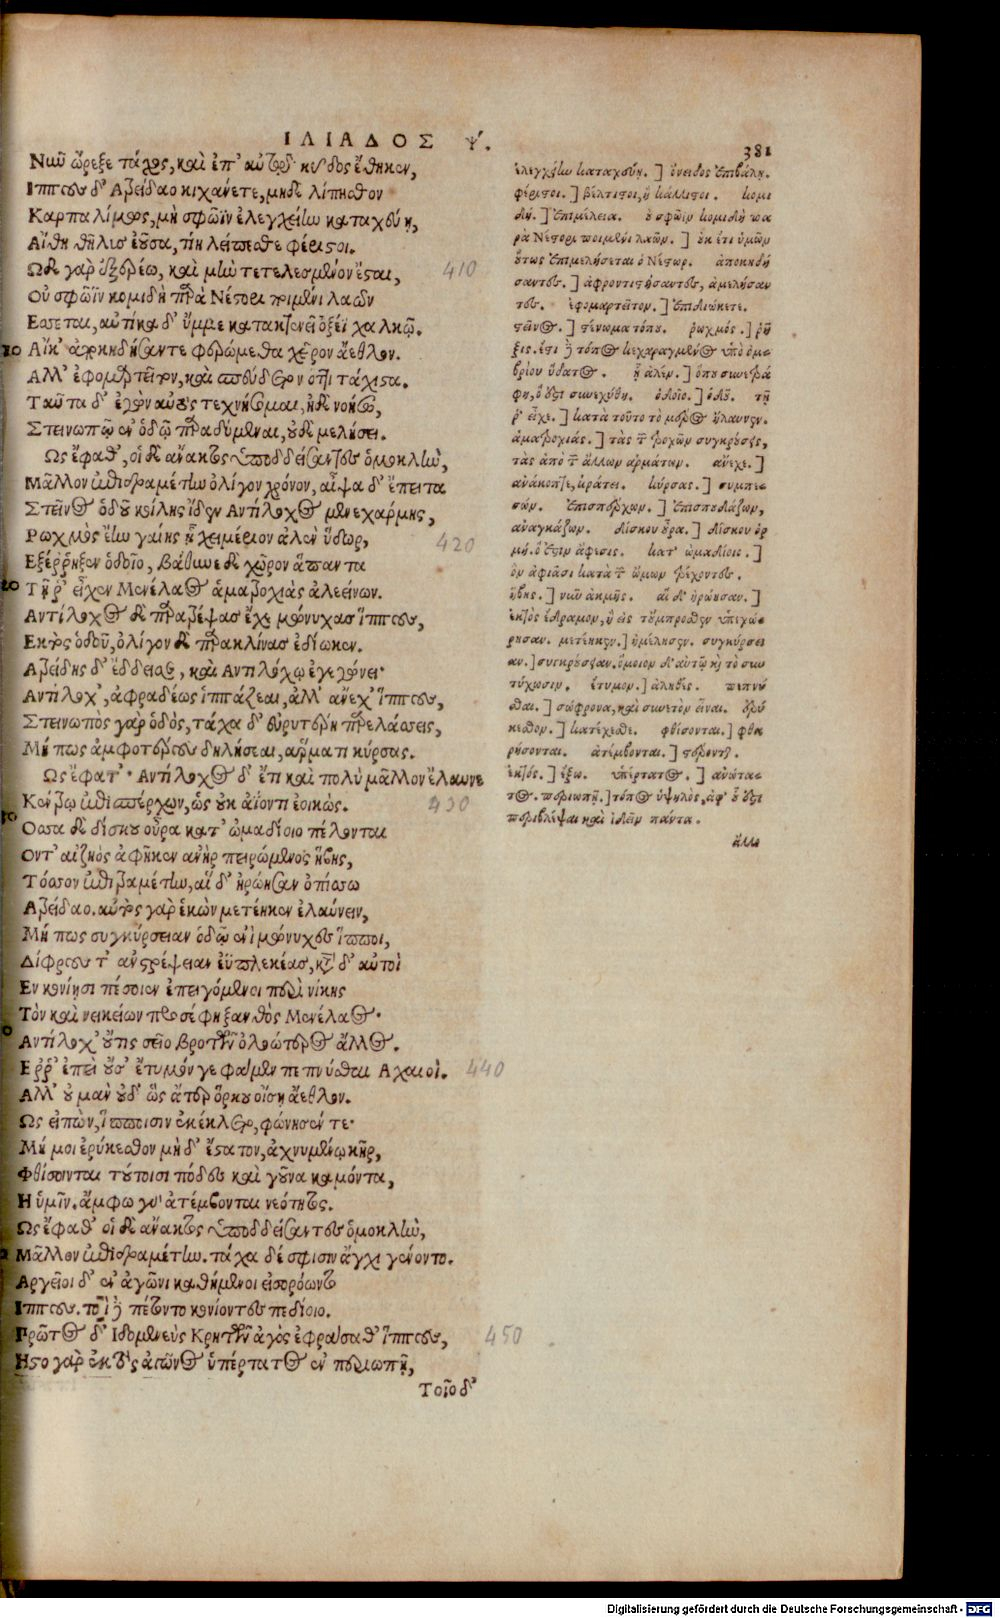 ΙΛΙΑΔΟΣ Ψ.
381
Νῦν ὤρεξε τάχος, καὶ ἐπ' αὐτῷ κῦδος ἔθηκεν,
Ιππους δ' Ατρείδαο κιχάνετε, μηδὲ λίπησθον
Καρπαλίμως, μὴ σφῶϊν ἐλεγχείην καταχεύῃ,
Αἴθη θῆλυς ἐοῦσα, τίη λείπεσθε φέριστοι.
Ωδε γὰρ ἐξερέω, καὶ μὴν τετελεσμένον ἔσται,
410
Οὐ σφῶϊν κομιδὴ παρὰ Νέστορι ποιμένι λαῶν
Εσσεται, αὐτίκα δ' ὔμμε κατακτενεῖ ὀξέϊ χαλκῷ.
Αἴκ' ἀποκηδήσαντε φερώμεθα χεῖρον ἄεθλον.
Αλλ' ἐφομαρτεῖτον, καὶ σπεύδετον ὅττι τάχιστα.
Ταῦτα δ' ἐγὼν αὐτὸς τεχνήσομαι, ἠδὲ νοήσω,
Στεινωπῷ ἐν ὁδῷ παραδύμεναι, οὐδέ με λήσει.
Ως ἔφαθ', οἱ δὲ ἄνακτος ὑποδδείσαντες ὁμοκλὴν,
Μᾶλλον ἐπιδραμέτην ὀλίγον χρόνον, αἶψα δ' ἔπειτα
Στεῖνος ὁδοῦ κοίλης ἴδεν Αντίλοχος μενεχάρμης,
Ρωχμὸς ἔην γαίης ᾗ χειμέριον ἀλὲν ὕδωρ,
420
Εξέρρηξεν ὁδοῖο, βάθυνε δὲ χῶρον ἅπαντα
Τῇ ῥ' εἶχεν Μενέλαος ἁματροχιὰς ἀλεείνων.
Αντίλοχος δὲ παρατρέψας ἔχε μώνυχας ἵππους,
Εκτὸς ὁδοῦ, ὀλίγον δὲ παρακλίνας ἐδίωκεν.
Ατρείδης δ' ἔδδεισε, καὶ Αντιλόχῳ ἐγεγώνει·
Αντίλοχ', ἀφραδέως ἱππάζεαι, ἀλλ' ἄνεχ' ἵππους,
Στεινωπὸς γὰρ ὁδὸς, τάχα δ' εὐρυτέρη παρελάσσεις,
Μή πως ἀμφοτέρους δηλήσεαι, ἅρματι κύρσας.
Ως ἔφατ'· Αντίλοχος δ' ἔτι καὶ πολὺ μᾶλλον ἔλαυνε
Κέντρῳ ἐπισπέρχων, ὡς οὐκ ἀΐοντι ἐοικώς.
430
Οσσα δὲ δίσκου οὖρα κατ' ὠμαδίοιο πέλονται
Οντ' αἰζηὸς ἀφῆκεν ἀνὴρ πειρώμενος ἥβης,
Τόσσον ἐπιδραμέτην, αἳ δ' ἠρώησαν ὀπίσσω
Ατρείδαο. αὐτὸς γὰρ ἑκὼν μετέηκεν ἐλαύνειν,
Μή πως συγκύρσειαν ὁδῷ ἐνὶ μώνυχες ἵπποι,
Δίφρους τ' ἀνστρέψειαν ἐϋπλεκέας, κατὰ δ' αὐτοὶ
Εν κονίῃσι πέσοιεν ἐπειγόμενοι περὶ νίκης
Τὸν καὶ νεικείων προσέφη ξανθὸς Μενέλαος.
Αντίλοχ' οὔτις σεῖο βροτῶν ὀλοώτερος ἄλλος.
Ερρ' ἐπεὶ οὔ σ' ἔτυμόν γε φάμεν πεπνῦσθαι Αχαιοί.
440
Αλλ' οὐ μὰν οὐδ' ὣς ἄτερ ὅρκου οἴσῃ ἄεθλον.
Ως εἰπὼν, ἵπποισιν ἐκέκλετο, φώνησέν τε·
Μή μοι ἐρύκεσθον μὴ δ' ἔστατον, ἀχνυμένῳ κῆρ,
Φθίσονται τούτοισι πόδες καὶ γοῦνα καμόντα,
Η ὑμῖν. ἄμφω γὰρ ἀτέμβονται νεότητος.
Ως ἔφαθ' οἱ δὲ ἄνακτος ὑποδδείσαντες ὁμοκλὴν,
Μᾶλλον ἐπιδραμέτην. τάχα δέ σφισιν ἄγχι γένοντο.
Αργεῖοι δ' ἐν ἀγῶνι καθήμενοι εἰσορόωντο
Ιππους. τοὶ δὲ πέτοντο κονίοντες πεδίοιο.
Πρῶτος δ' Ιδομενεὺς Κρητῶν ἀγὸς ἐφράσαθ' ἵππους,
450
Ηστο γὰρ ἐκτὸς ἀγῶνος ὑπέρτατος ἐν περιωπῇ,
Τοῖο δ'
ἐλεγχείην καταχεύῃ. ] ὄνειδος ἐπιβάλῃ.
φέριστοι. ] βέλτιστοι, ἢ κάλλιστοι. κομι
δή. ] ἐπιμέλεια. οὐ σφῶϊν κομιδὴ πα
ρὰ Νέστορι ποιμένι λαῶν. ] οὐκ ἔτι ὑμῶν
οὕτως ἐπιμελήσεται ὁ Νέστωρ. ἀποκηδή
σαντες. ] ἀφροντιστήσαντες, ἀμελήσαν
τες. ἐφομαρτεῖτον. ] ἐπιδιώκετε.
στεῖνος. ] στένωμα τόπου. ῥωχμός. ] ῥῆ
ξις. ἔστι δὲ τόπος κεχαραγμένος ὑπὸ ὀμ
βρίου ὕδατος. ᾗ ἀλέν. ] ὅπου συνεστρά
φη, ὅ ἐστι συνεχύθη. ὁδοῖο. ] ὁδοῦ. τῇ
ῥ' εἶχε. ] κατὰ τοῦτο τὸ μέρος ἤλαυνεν.
ἁματροχιάς. ] τὰς τῶν τροχῶν συγκρούσεις,
τὰς ἀπὸ τῶν ἄλλων ἁρμάτων. ἄνεχε. ]
ἀνάκοπτε, κράτει. κύρσας. ] συμπε
σών. ἐπισπέρχων. ] ἐπισπουδάζων,
ἀναγκάζων. δίσκου οὖρα. ] δίσκου ὁρ
μή. ὅ ἐστιν ἄφεσις. κατ' ὠμαδίοιο. ]
ὃν ἀφιᾶσι κατὰ τῶν ὤμων τρέχοντες.
ἥβης. ] νῦν ἀκμῆς. αἳ δ' ἠρώησαν. ]
ἐκτὸς ἔδραμον, ἢ εἰς τοὔμπροσθεν ὑπεχώ-
ρησαν. μετέηκεν. ] ἠμέλησεν. συγκύρσει
αν. ] συγκρούσειαν. ὅμοιον δ' αὐτῷ καὶ τὸ συν
τύχωσιν. ἔτυμον. ] ἀληθές. πεπνῦ
σθαι. ] σώφρονα, καὶ συνετὸν εἶναι. ἐρύ
κεσθον. ] κατέχεσθε. φθίσονται. ] φθα
ρήσονται. ἀτέμβονται. ] στέρονται.
ἐκτός. ] ἔξω. ὑπέρτατος. ] ἀνώτα-
τος. περιωπῇ. ] τόπος ὑψηλὸς, ἀφ' οὗ ἐστι
περιβλέψαι καὶ ἰδεῖν πάντα.
ἄλλο
Digitalisierung gefördert durch die Deutsche Forschungsgemeinschaft - DFG